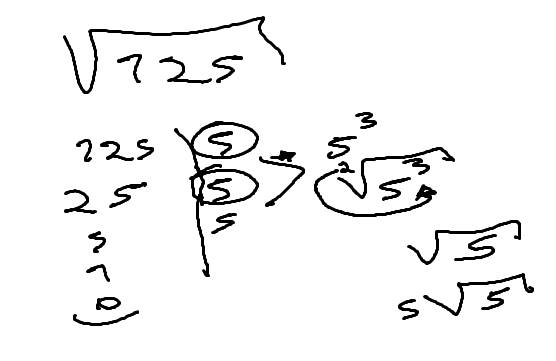 √125
125 | 5
25 | 5
5 | 5
1
0
→ 5³
²√5³
√5
5√5